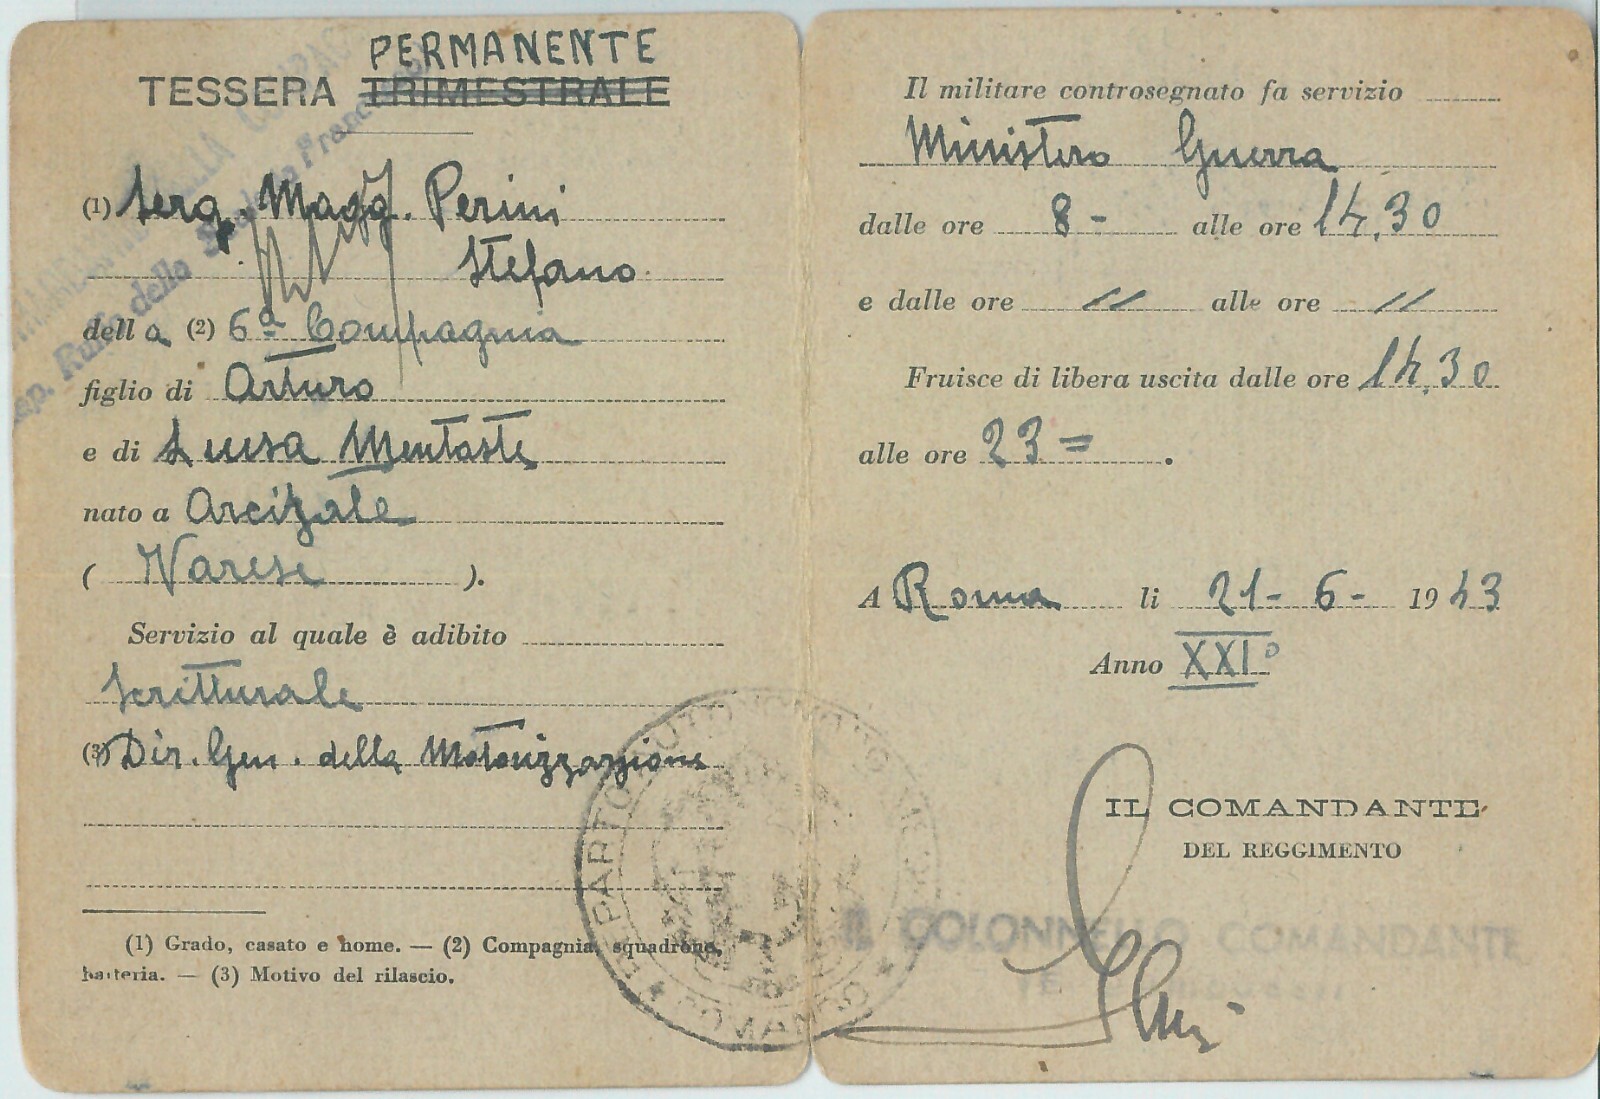 PERMANENTE
TESSERA TRIMESTRALE
(1) Serg. Magg. Perini
Stefano
della (2) 6ª Compagnia
figlio di Arturo
e di Luisa Mentaste
nato a Arcisate
( Varese ).
Servizio al quale è adibito
Scritturale
(3) Dir. Gen. della Motorizzazione
(1) Grado, casato e nome. — (2) Compagnia, squadrone,
batteria. — (3) Motivo del rilascio.
Il militare controsegnato fa servizio
Ministero Guerra
dalle ore 8 - alle ore 14,30
e dalle ore // alle ore //
Fruisce di libera uscita dalle ore 14,30
alle ore 23 = .
A Roma li 21 - 6 - 1943
Anno XXI°
IL COMANDANTE
DEL REGGIMENTO
IL COLONNELLO COMANDANTE
REPARTO AUTONOMO
* COMANDO *